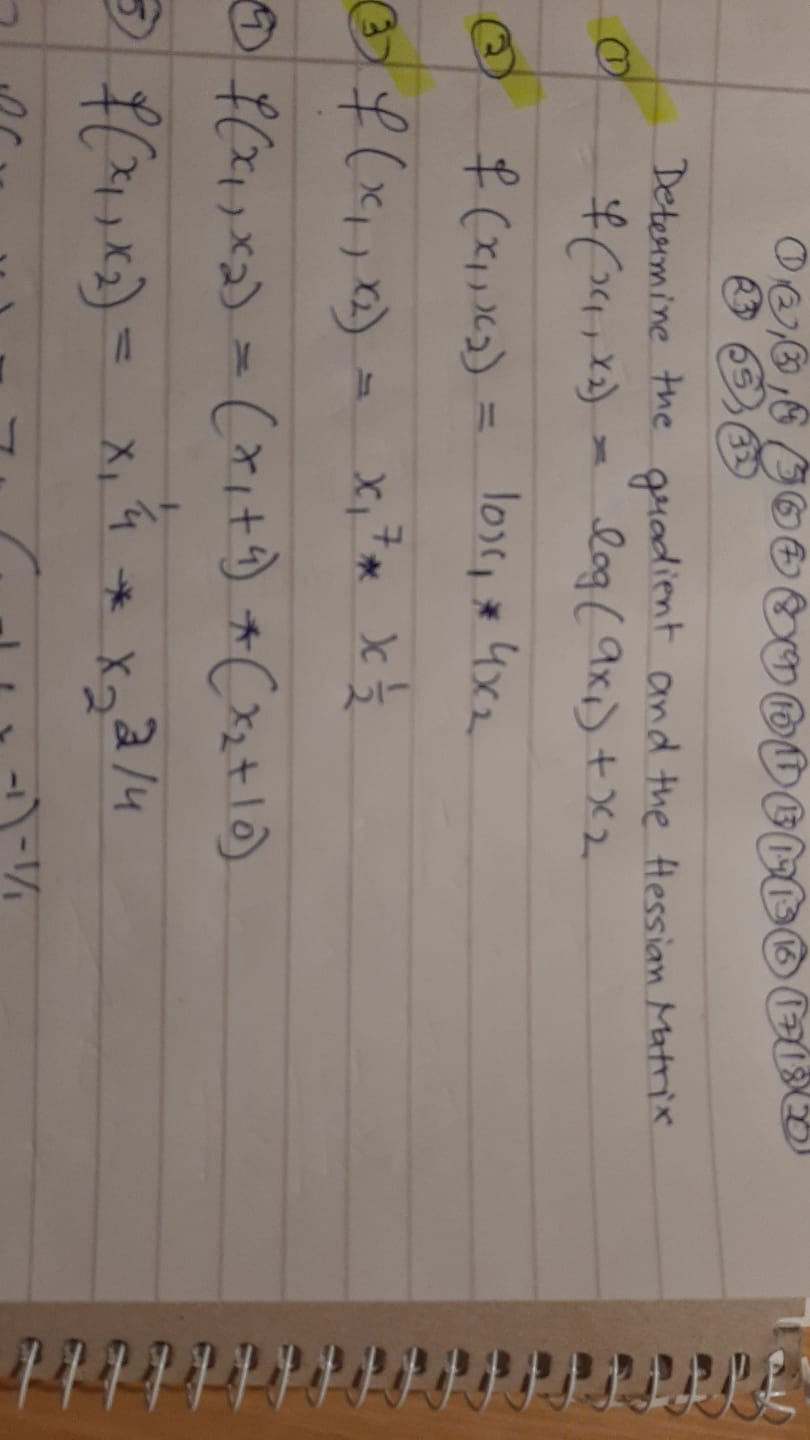 ①,②,③,④ ⑤ ⑥ ⑦ ⑧ ⑨ ⑩ ⑪ ⑬ ⑭ ⑮ ⑯ ⑰ ⑱ ⑳
㉓ ㉕, ㉜
Determine the gradient and the Hessian Matrix
① f(x₁, x₂) = log(9x₁) + x₂
② f(x₁, x₂) = 10x₁ * 4x₂
③ f(x₁, x₂) = x₁⁷ * x½
④ f(x₁, x₂) = (x₁+4) * (x₂+10)
⑤ f(x₁, x₂) = x₁^1/4 * x₂^3/4